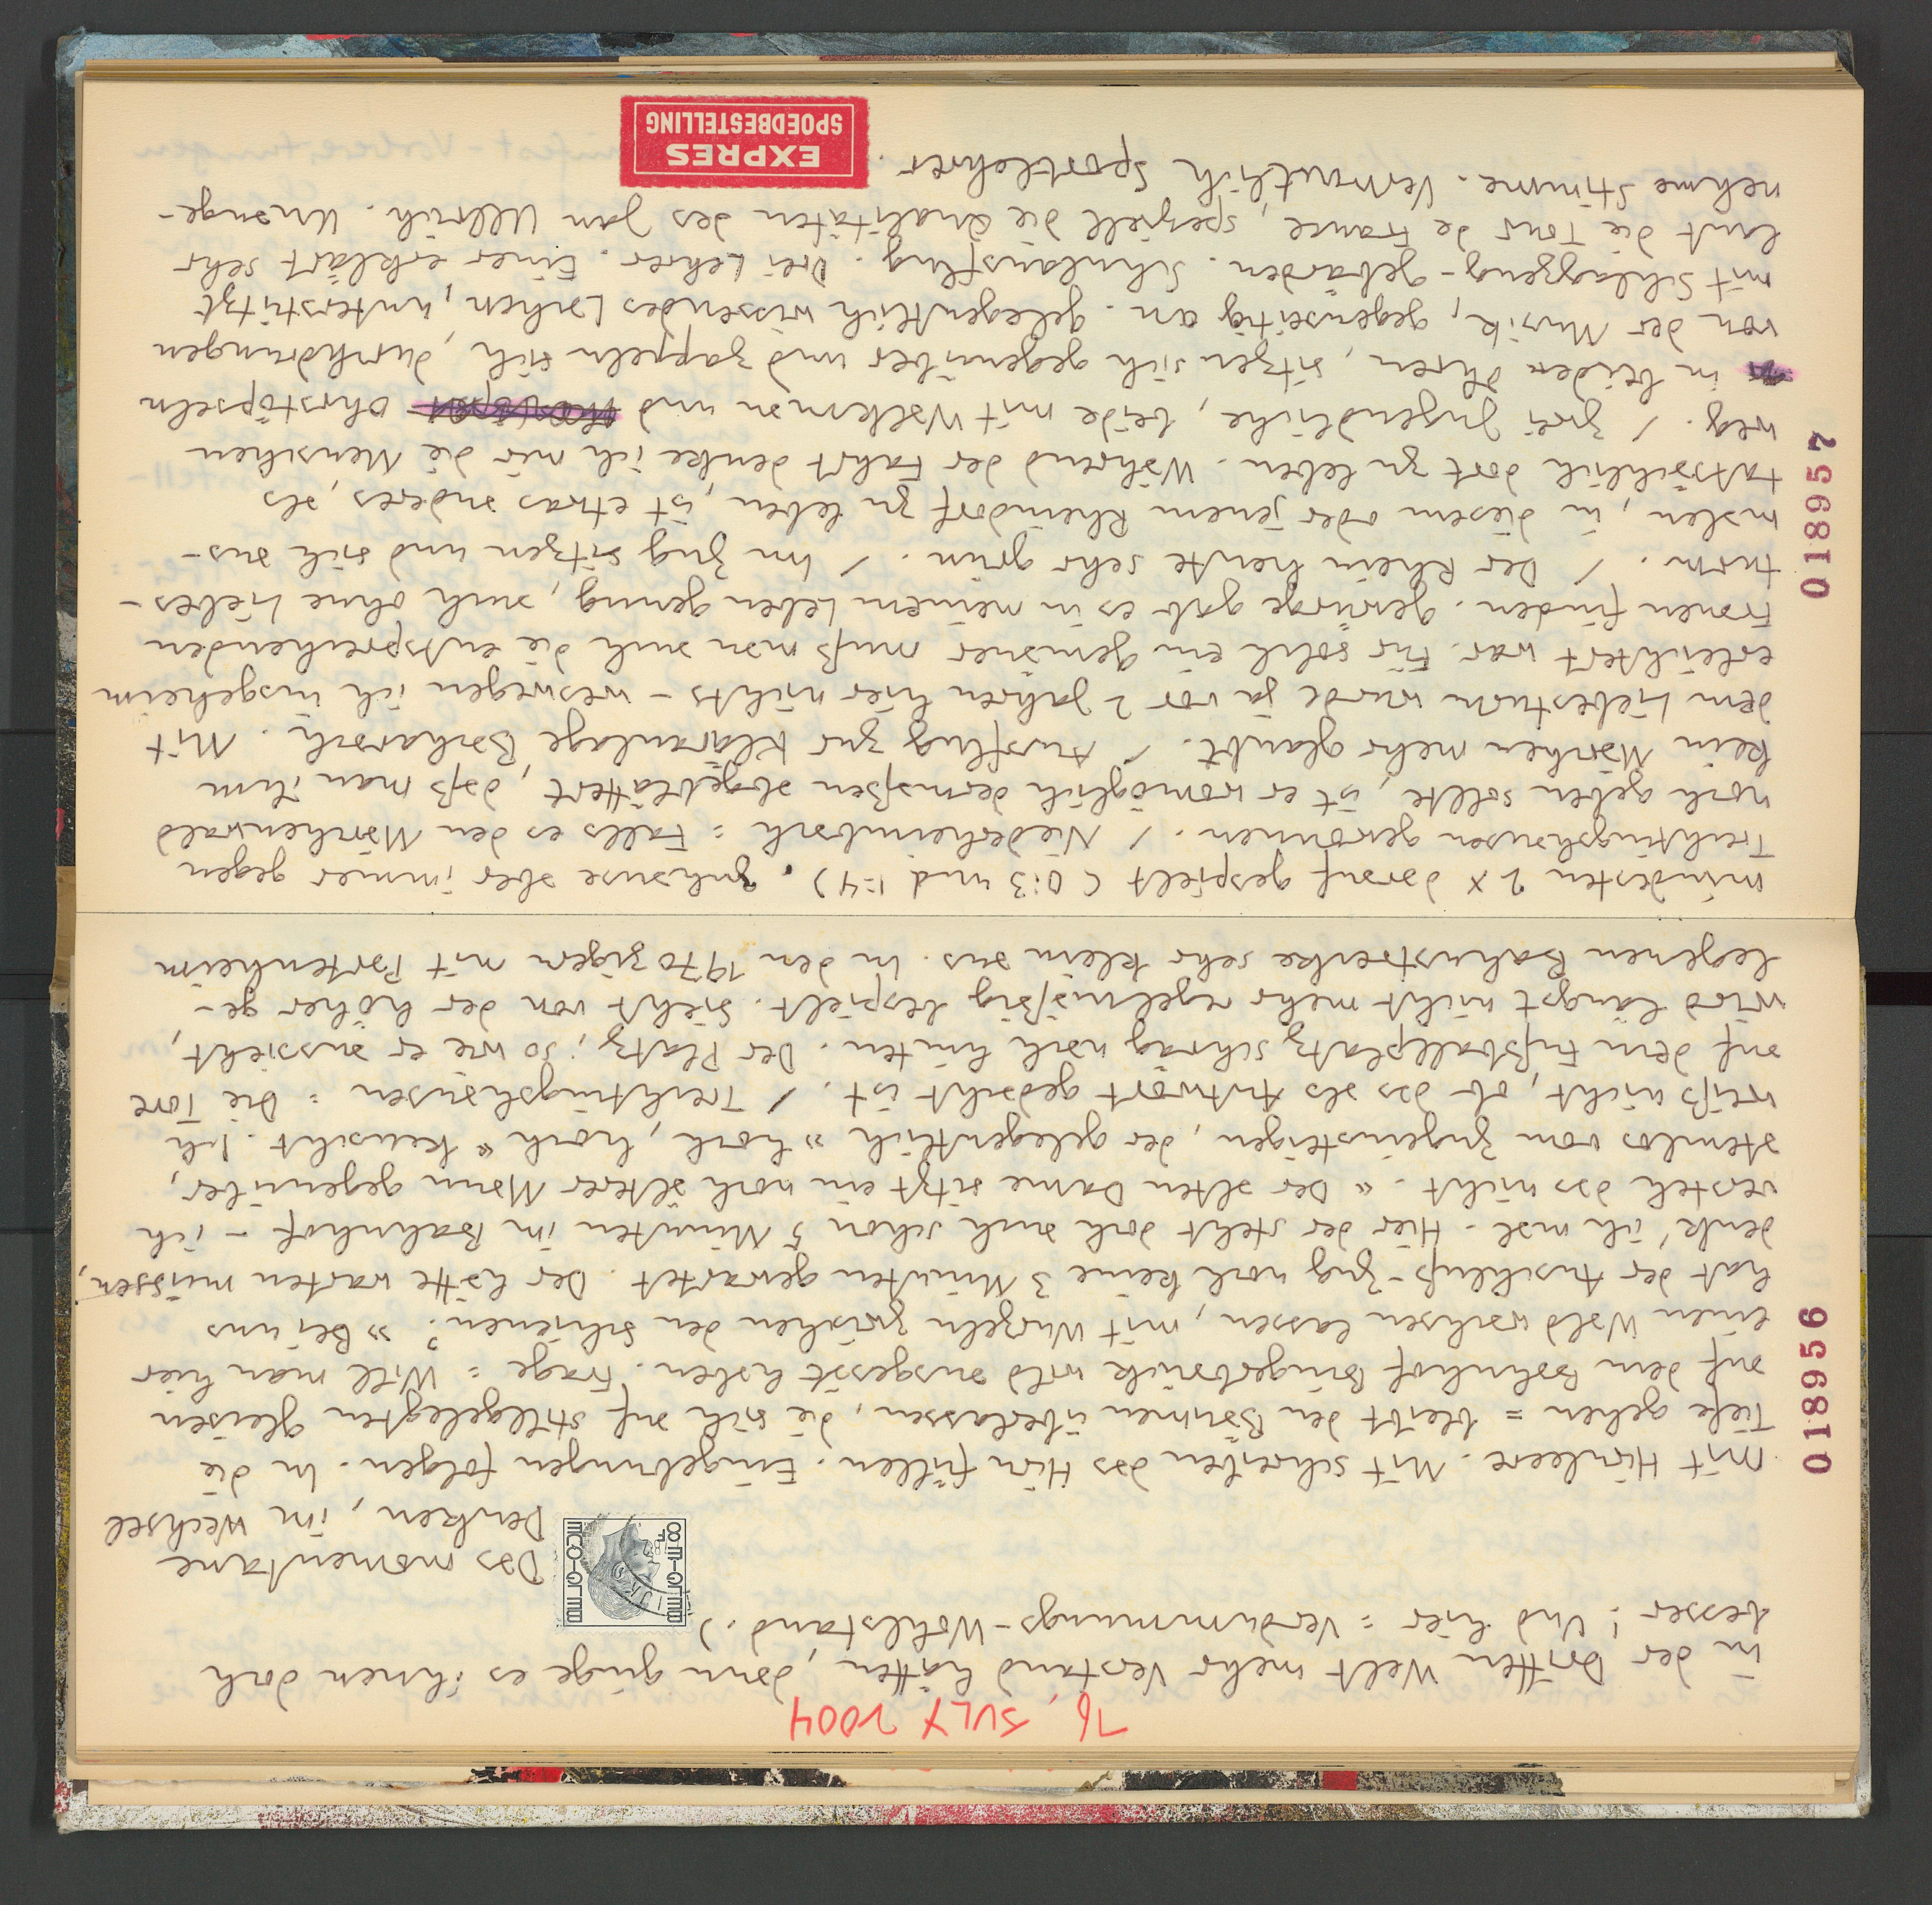 16. JULY 2004
in der Dritten Welt mehr Verstand hätten, dann ginge es ihnen doch
besser! Und hier = Verdummungs-Wohlstand.)
Das momentane
Denken, im Wechsel
mit Hirnleere. Mit schreiben das Hirn füllen. Eingebungen folgen. In die
Tiefe gehen = bleibt den Bäumen überlassen, die sich auf stillgelegten Gleisen
auf dem Bahnhof Bingerbrück wild ausgesät haben. Frage: Will man hier
einen Wald wachsen lassen, mit Wurzeln zwischen den Schienen? » Bei uns
hat der Anschluß-Zug noch keine 3 Minuten gewartet. Der hätte warten müssen,
denk' ich mal. Hier der steht doch auch schon 5 Minuten im Bahnhof - ich
versteh das nicht. « Der alten Dame sitzt ein noch älterer Mann gegenüber,
atemlos vom Zugeinsteigen, der gelegentlich » hoch, hoch « keucht. Ich
weiß nicht, ob das als Antwort gedacht ist. / Trechtingshausen : Die Tore
auf dem Fußballplatz schräg nach hinten. Der Platz, so wie er aussieht,
wird längst nicht mehr regelmäßig bespielt. Sieht von der höher ge-
legenen Bahnstrecke sehr klein aus. In den 1970zigen mit Partenheim
mindesten 2 x darauf gespielt (0:3 und 1:4). Zuhause aber immer gegen
Trechtingshausen gewonnen. / Niederheimbach : Falls es den Märchenwald
noch geben sollte, ist er womöglich dermaßen abgeblättert, daß man ihm
kein Märchen mehr glaubt. / Ausflug zur Kläranlage Bacharach. Mit
dem Liebesturm wurde ja vor 2 Jahren hier nichts - weswegen ich insgeheim
erleichtert war. Für solch ein Gemäuer muß man auch die entsprechenden
Frauen finden. Gewürge gab es in meinem Leben genug, auch ohne Liebes-
turm. / Der Rhein heute sehr grün. / Im Zug sitzen und sich aus-
malen, in diesem oder jenem Rheindorf zu leben, ist etwas anderes, als
tatsächlich dort zu leben. Während der Fahrt denke ich mir die Menschen
weg. / Zwei Jugendliche, beide mit Walkman und Ohrstöpseln
in beiden Ohren, sitzen sich gegenüber und zappeln sich, durchdrungen
von der Musik, gegenseitig an. Gelegentlich wissendes Lachen, unterstützt
mit Schlagzeug-Gebärden. Schulausflug. Drei Lehrer. Einer erklärt sehr
laut die Tour de France, speziell die Qualitäten des Jan Ullrich. Unange-
nehme Stimme. Vermutlich Sportlehrer.
EXPRES
SPOEDBESTELLING
018956
018957